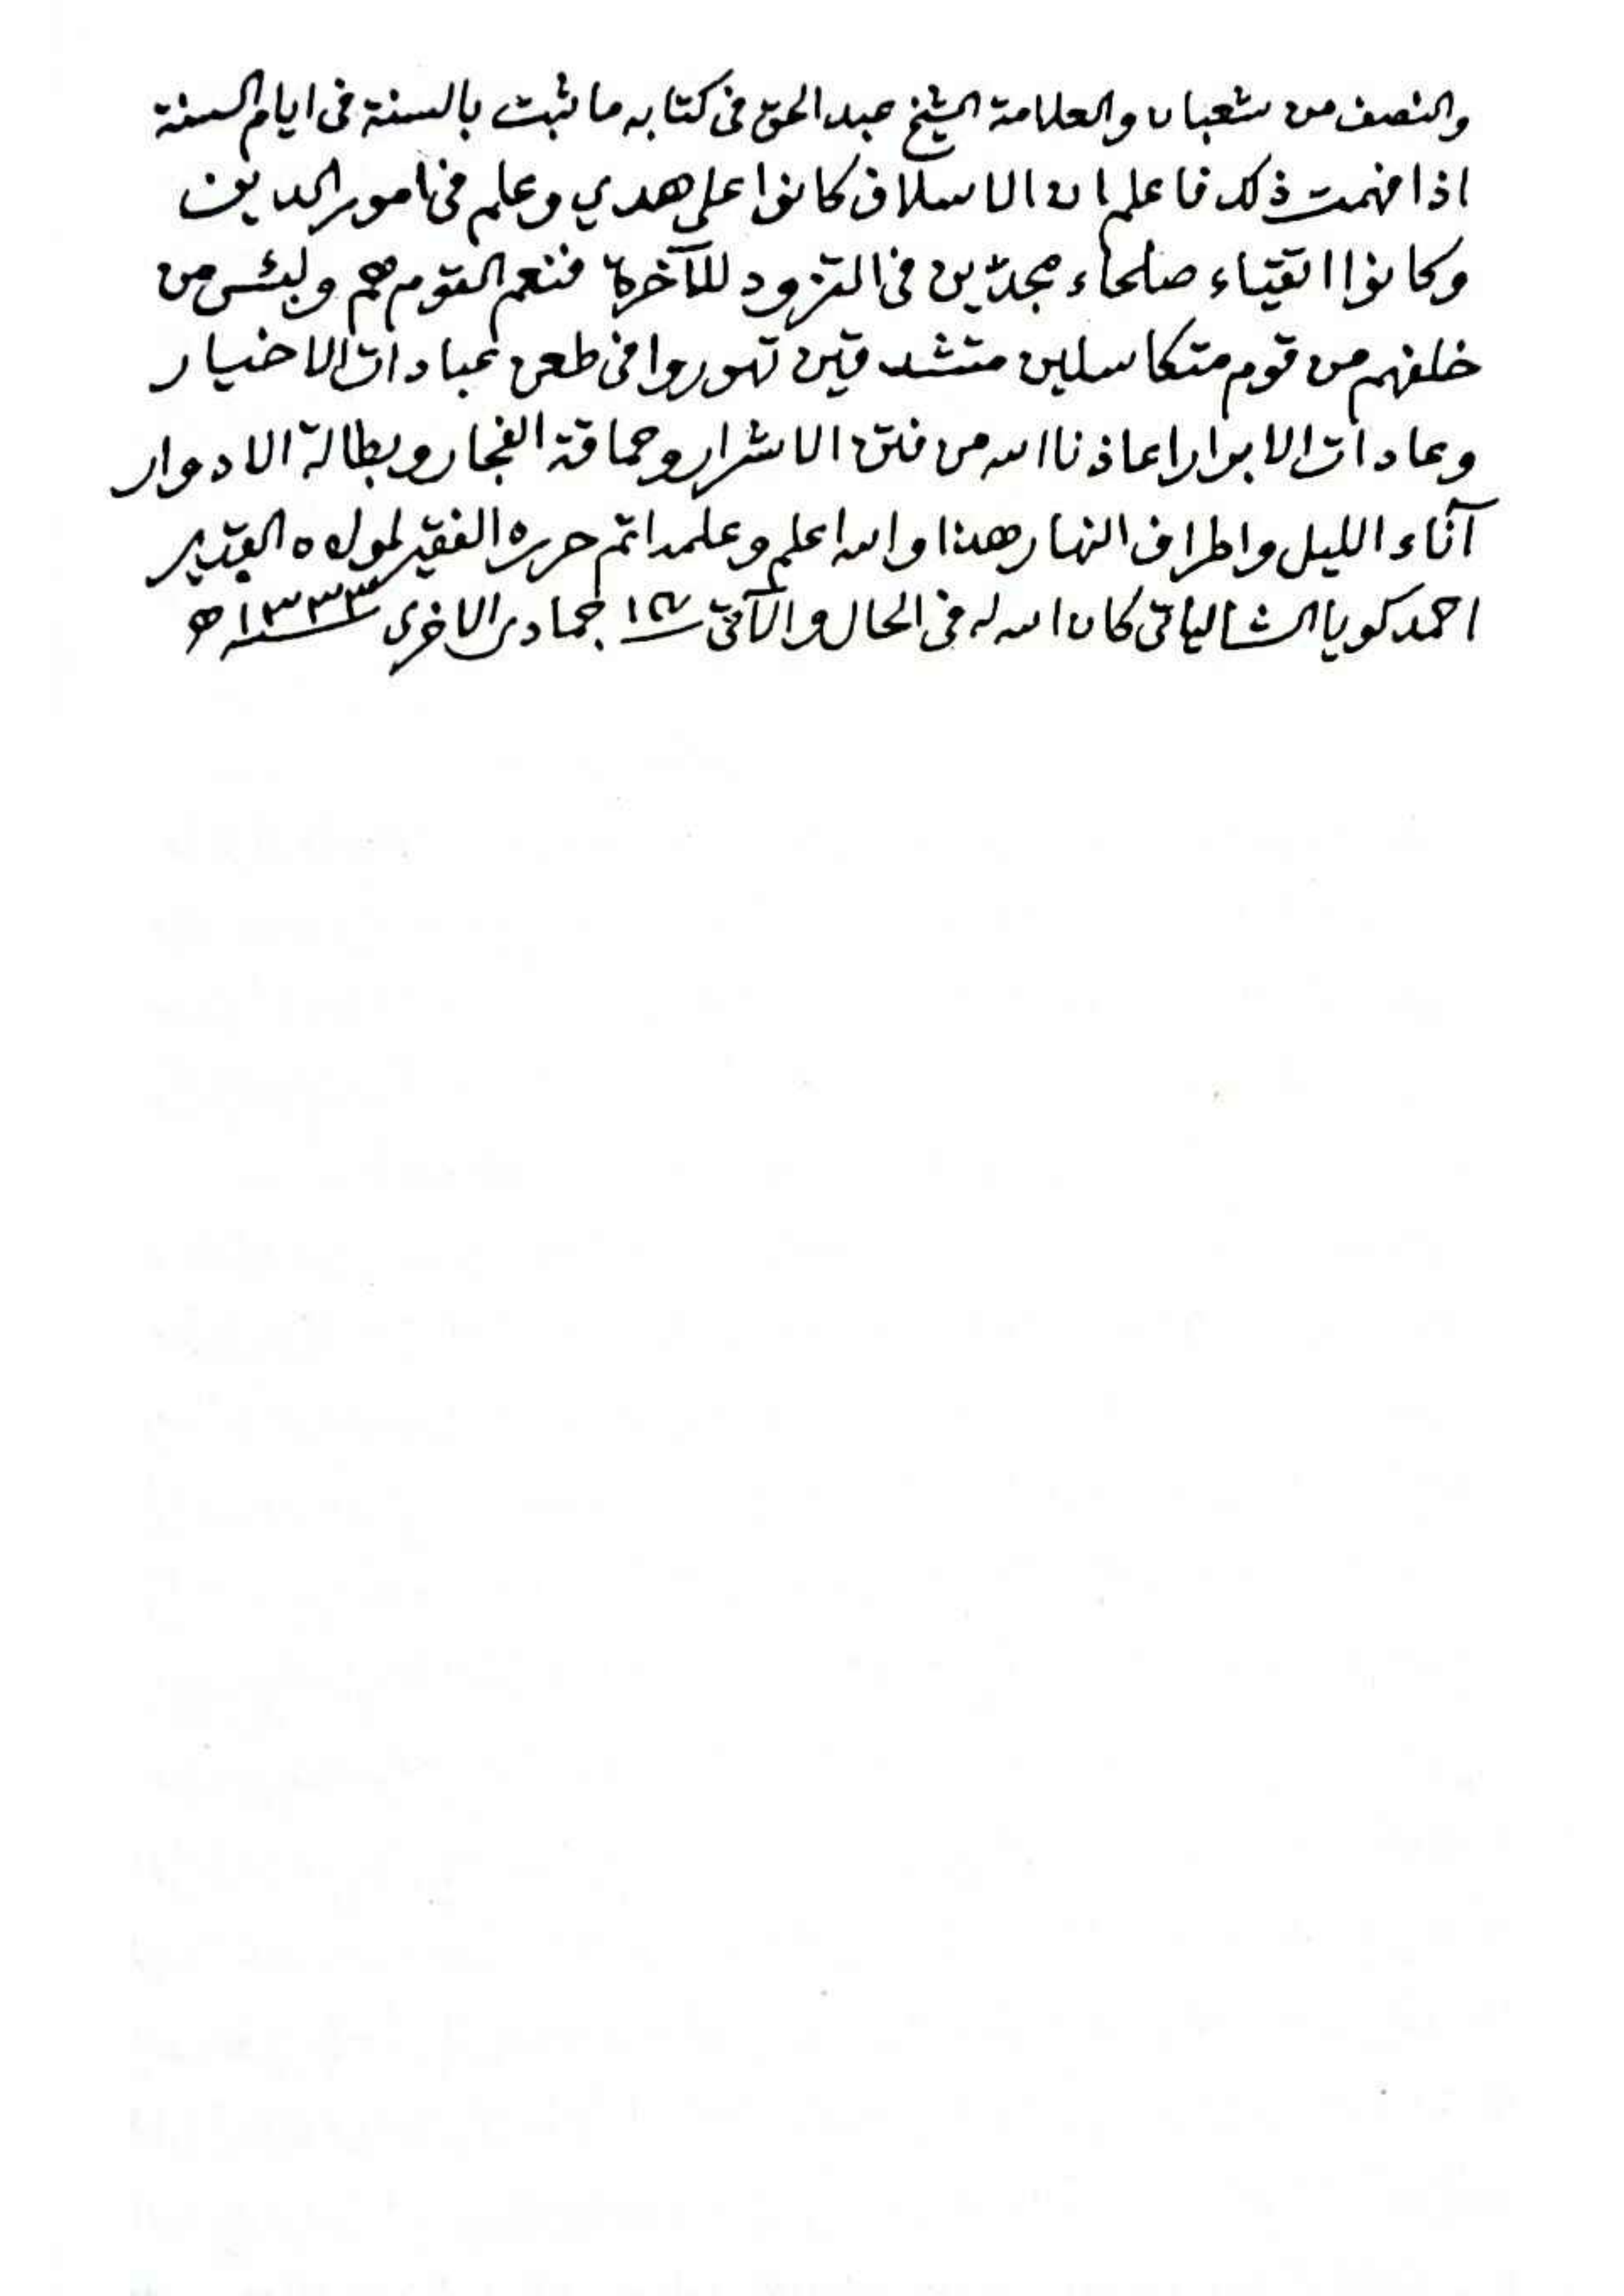 والنصف من شعبان والعلامة الشيخ عبد الحق فى كتابه ما ثبت بالسنة فى ايام السنة
اذا فهمت ذلك فاعلم ان الاسلاف كانوا على هدي وعلم فى امور الدين
وكانوا اتقياء صلحاء مجدّين فى التزود للآخرة فنعم القوم هم ولبئس من
خلفهم من قوم متكاسلين متشدقين تهوروا فى طعن عبادات الاخيار
وعادات الابرار اعاذنا الله من فتن الاشرار وحماقة الفجار وبطالة الادوار
آناء الليل واطراف النهار هذا والله اعلم وعلمه اتم حرره الفقير لمولاه القدير
احمد كويا الشالياتى كان الله له فى الحال والآتى جمادى الاخرى سنة ١٣٣٣ ه